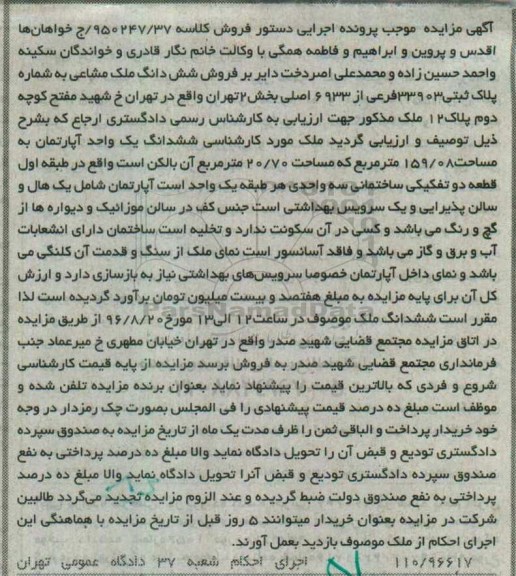 آگهی مزایده موجب پرونده اجرایی دستور فروش کلاسه ۹۵۰۲۴۷/۳۷/ج خواهان‌ها
اقدس و پروین و ابراهیم و فاطمه همگی با وکالت خانم نگار قادری و خواندگان سکینه
واحمد حسین زاده و محمدعلی امصردخت دایر بر فروش شش دانگ ملک مشاعی به شماره
پلاک ثبتی۳۳۹۰۳فرعی از ۶۹۳۳ اصلی بخش۲تهران واقع در تهران خ شهید مفتح کوچه
دوم پلاک۱۲ ملک مذکور جهت ارزیابی به کارشناس رسمی دادگستری ارجاع که بشرح
ذیل توصیف و ارزیابی گردید ملک مورد کارشناسی ششدانگ یک واحد آپارتمان به
مساحت۱۵۹/۰۸ مترمربع که مساحت ۲۰/۷۰ مترمربع آن بالکن است واقع در طبقه اول
قطعه دو تفکیکی ساختمانی سه واحدی هر طبقه یک واحد است آپارتمان شامل یک هال و
سالن پذیرایی و یک سرویس بهداشتی است جنس کف در سالن موزائیک و دیواره ها از
گچ و رنگ می باشد و کسی در آن سکونت ندارد و تخلیه است ساختمان دارای انشعابات
آب و برق و گاز می باشد و فاقد آسانسور است نمای ملک از سنگ و قدمت آن کلنگی می
باشد و نمای داخل آپارتمان خصوصا سرویس‌های بهداشتی نیاز به بازسازی دارد و ارزش
کل آن برای پایه مزایده به مبلغ هفتصد و بیست میلیون تومان برآورد گردیده است لذا
مقرر است ششدانگ ملک موصوف در ساعت۱۲ الی۱۳ مورخ ۹۶/۸/۲۰ از طریق مزایده
در اتاق مزایده مجتمع قضایی شهید صدر واقع در تهران خیابان مطهری خ میرعماد جنب
فرمانداری مجتمع قضایی شهید صدر به فروش برسد مزایده از پایه قیمت کارشناسی
شروع و فردی که بالاترین قیمت را پیشنهاد نماید بعنوان برنده مزایده تلقی شده و
موظف است مبلغ ده درصد قیمت پیشنهادی را فی المجلس بصورت چک رمزدار در وجه
خود خریدار پرداخت و الباقی ثمن را ظرف مدت یک ماه از تاریخ مزایده به صندوق سپرده
دادگستری تودیع و قبض آن را تحویل دادگاه نماید والا مبلغ ده درصد پرداختی به نفع
صندوق سپرده دادگستری تودیع و قبض آنرا تحویل دادگاه نماید والا مبلغ ده درصد
پرداختی به نفع صندوق دولت ضبط گردیده و عند الزوم مزایده تجدید می‌گردد طالبین
شرکت در مزایده بعنوان خریدار میتوانند ۵ روز قبل از تاریخ مزایده با هماهنگی این
اجرای احکام از ملک موصوف بازدید بعمل آورند.
۱۱۰/۹۶۶۱۷ اجرای احکام شعبه ۳۷ دادگاه عمومی تهران